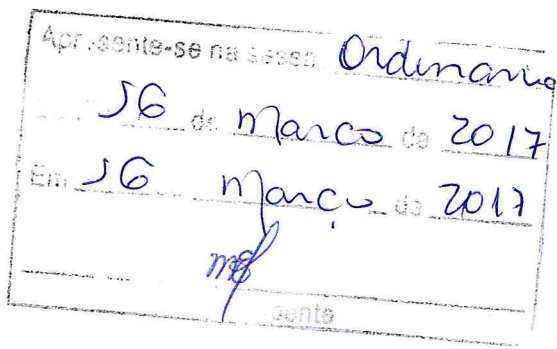 Apresente-se na sessão Ordinária
16 de Março de 2017
Em 16 Março de 2017